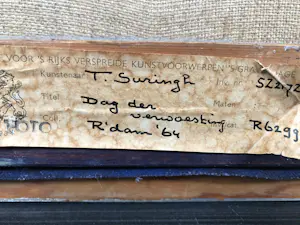 VOOR 'S RIJKS VERSPREIDE KUNSTVOORWERPEN 'S GRA
Kunstenaar T. Suringh Inv. nr. SZ2172
Titel Dag der verwoesting Maten
Coll. R'dam '64 R6299
FOTO